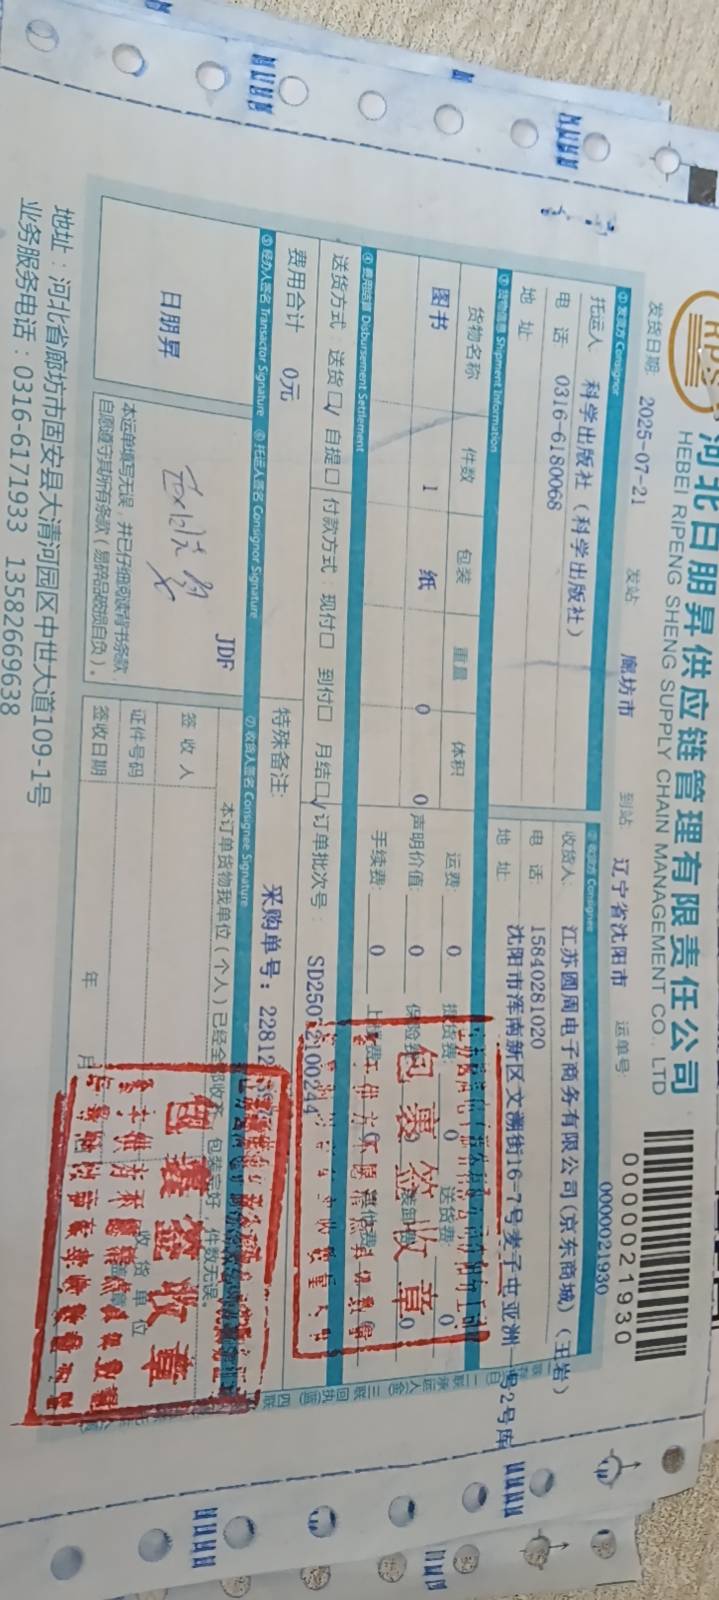 河北日朋昇供应链管理有限责任公司
HEBEI RIPENG SHENG SUPPLY CHAIN MANAGEMENT CO., LTD
0000021930
发货日期: 2025-07-21 发站 廊坊市 到站: 辽宁省沈阳市 运单号 0000021930
① 发货方 Consignor
② 收货方 Consignee
托运人 科学出版社（科学出版社）
收货人: 江苏圆周电子商务有限公司(京东商城)（王岩）
电 话 0316-6180068
电 话: 15840281020
地 址
地 址: 沈阳市浑南新区文溯街16-7号麦子屯亚洲一号2号库
③ 货物信息 Shipment Information
货物名称 件数 包装 重量 体积
图书 1 纸 0 0
运费: 0 提货费: 0 送货费: 0
声明价值: 0 保险费: 0 装卸费: 0
手续费: 0 上楼费: 0 其他费: 0
④ 费用结算 Disbursement Settlement
送货方式: 送货口√ 自提口 付款方式: 现付口 到付口 月结口√ 订单批次号: SD25072100244
费用合计 0元
特殊备注: 采购单号: 22812
⑤ 经办人签名 Transactor Signature ⑥ 托运人签名 Consignor Signature
⑦ 收货人签名 Consignee Signature
日朋昇
JDF
本运单填写无误, 并已仔细阅读背书条款,
自愿遵守其所有条款（易碎品破损自负）。
本订单货物我单位（个人）已经全部收齐, 包装完好, 件数无误。
签 收 人
收 货 单 位
证件号码
签收日期 年 月
包裹签收章
包裹签收章
地址：河北省廊坊市固安县大清河园区中世大道109-1号
业务服务电话：0316-6171933 13582669638